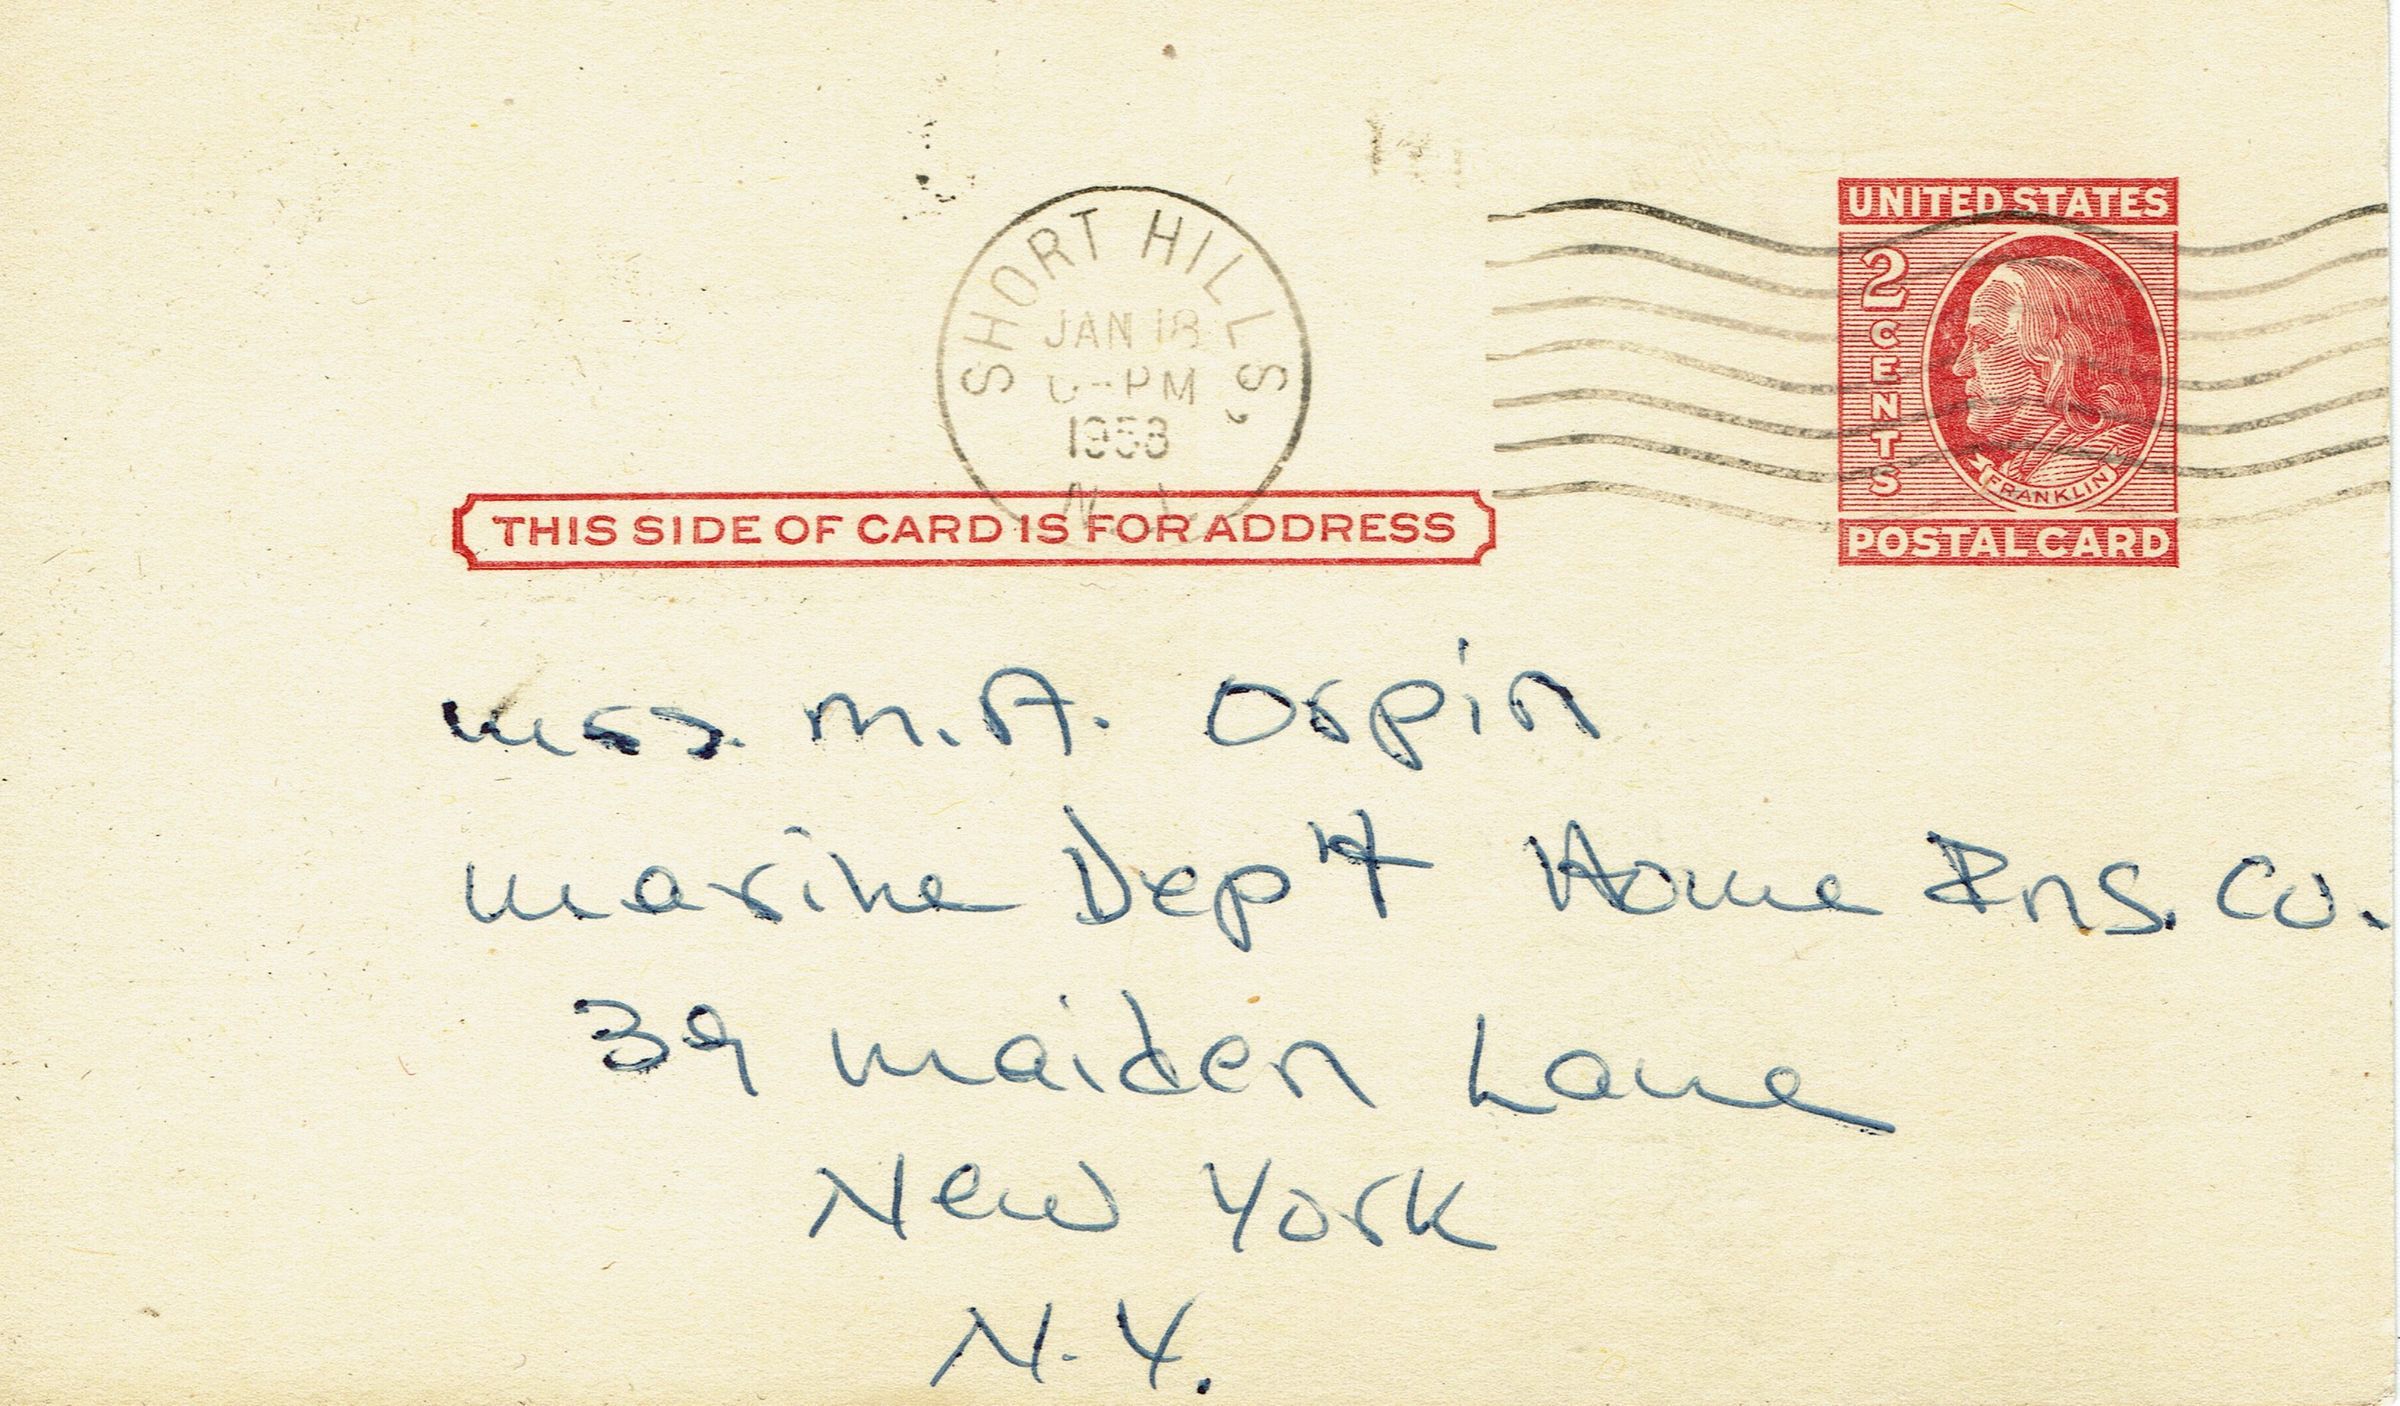 SHORT HILLS,
JAN 18
PM
1958
N.J.
UNITED STATES
2 CENTS
FRANKLIN
POSTAL CARD
THIS SIDE OF CARD IS FOR ADDRESS
Mrs. M.A. Orpin
Marine Dep't Home Ins. Co.
39 Maiden Lane
New York
N.Y.